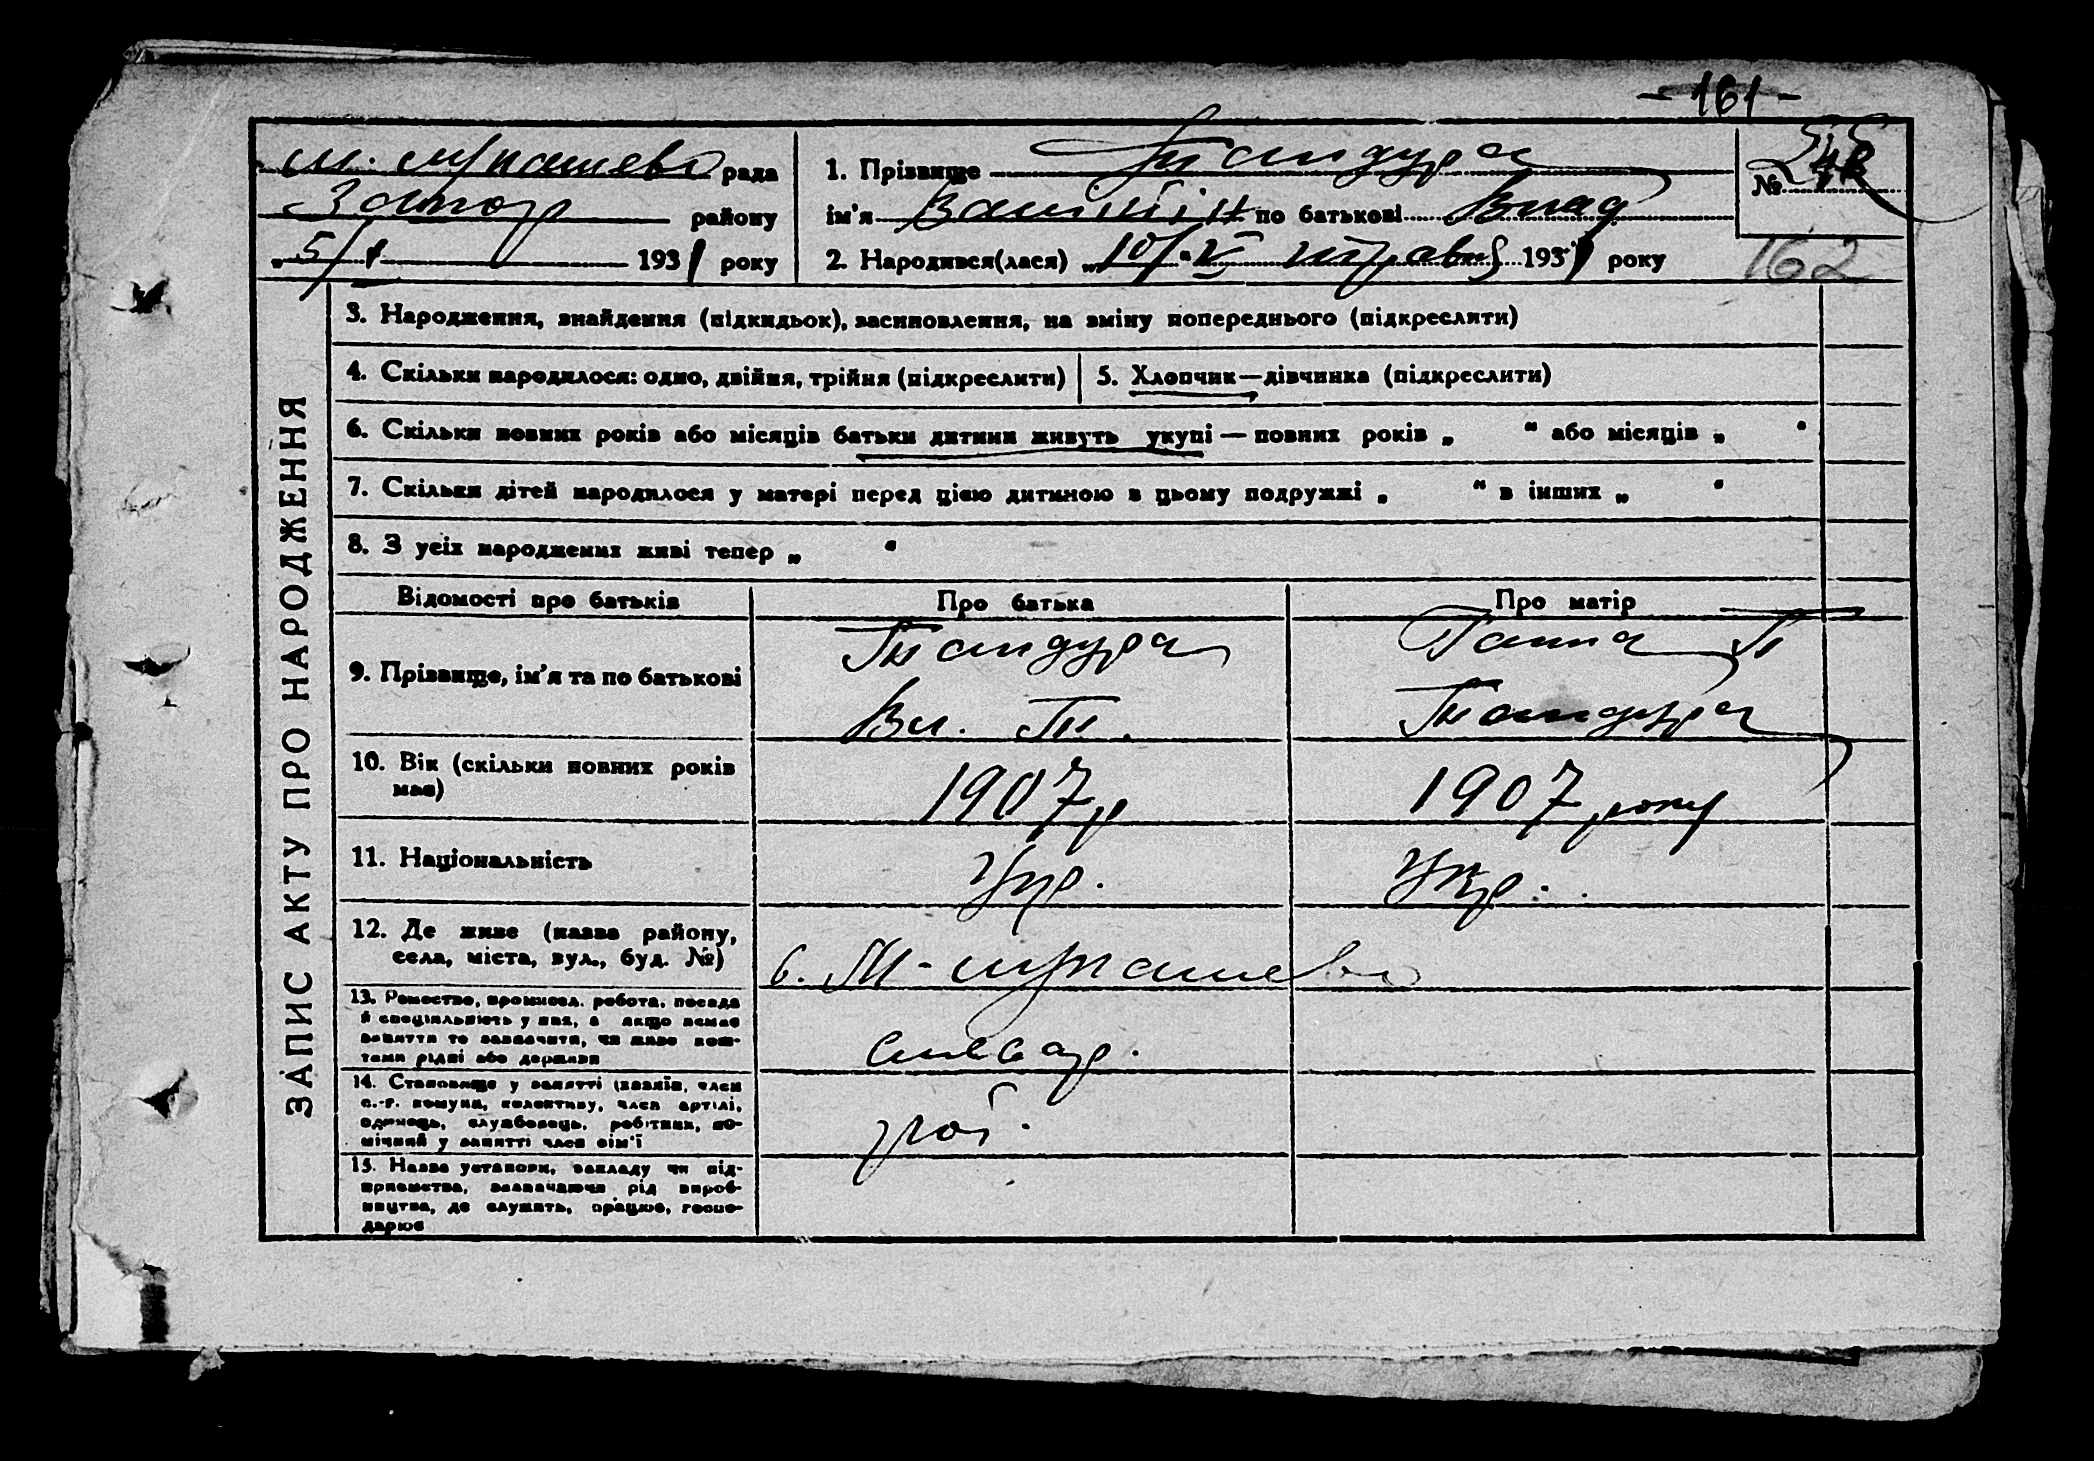 - 161 -
рада
Запор району
„ 5/1 1931 року
1. Прізвище
№
ім'я по батькові Влад.
2. Народився(лася) „10/ “ V травня 1931 року
162
ЗАПИС АКТУ ПРО НАРОДЖЕННЯ
3. Народження, знайдення (підкидьок), засиновлення, на зміну попереднього (підкреслити)
4. Скільки народилося: одно, двійня, трійня (підкреслити)
5. Хлопчик—дівчинка (підкреслити)
6. Скільки повних років або місяців батьки дитини живуть укупі — повних років „ “ або місяців „ “
7. Скільки дітей народилося у матері перед цією дитиною в цьому подружжі „ “ в інших „ “
8. З усіх народжених живі тепер „ “
Відомості про батьків
Про батька
Про матір
9. Прізвище, ім'я та по батькові
Ганна П
Вл. П.
10. Вік (скільки повних років
має)
1907 р
1907 року
11. Національність
Укр.
Укр.
12. Де живе (назва району,
села, міста, вул., буд. №)
13. Ремество, промисел, робота, посада
й спеціяльність у них, а якщо немає
заняття то зазначити, чи живе кош-
тами рідні або держави
слюсар.
14. Становище у занятті (хазяїн, член
с.-г. комуни, колективу, член артілі,
одинець, службовець, робітник, по-
мічний у занятті член сім'ї
роб.
15. Назва установи, закладу чи під-
приємства, зазначаючи рід вироб-
ництва, де служить, працює, госпо-
дарює